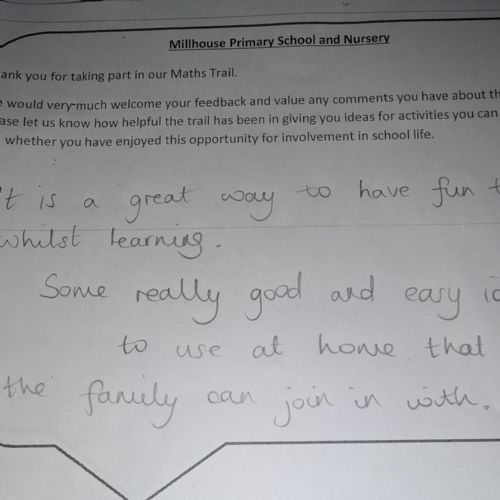 Millhouse Primary School and Nursery
ank you for taking part in our Maths Trail.
would very much welcome your feedback and value any comments you have about th
ase let us know how helpful the trail has been in giving you ideas for activities you can
whether you have enjoyed this opportunity for involvement in school life.
t is a great way to have fun t
whilst learning.
Some really good and easy id
to use at home that
the family can join in with.